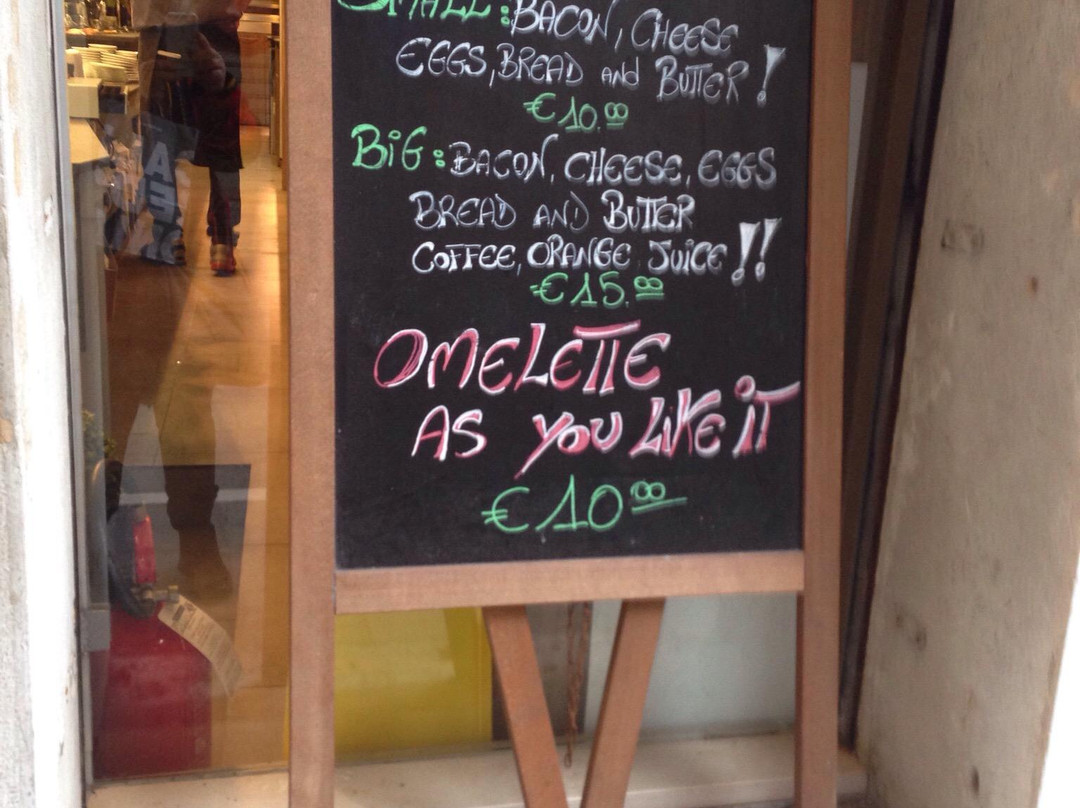 SMALL: BACON, CHEESE
EGGS, BREAD and BUTTER!
€10.00
BiG: BACON, CHEESE, EGGS
BREAD AND BUTTER
COFFEE, ORANGE JUiCE!!
€15.00
OMELETTE
AS YOU LIKE iT
€10 00